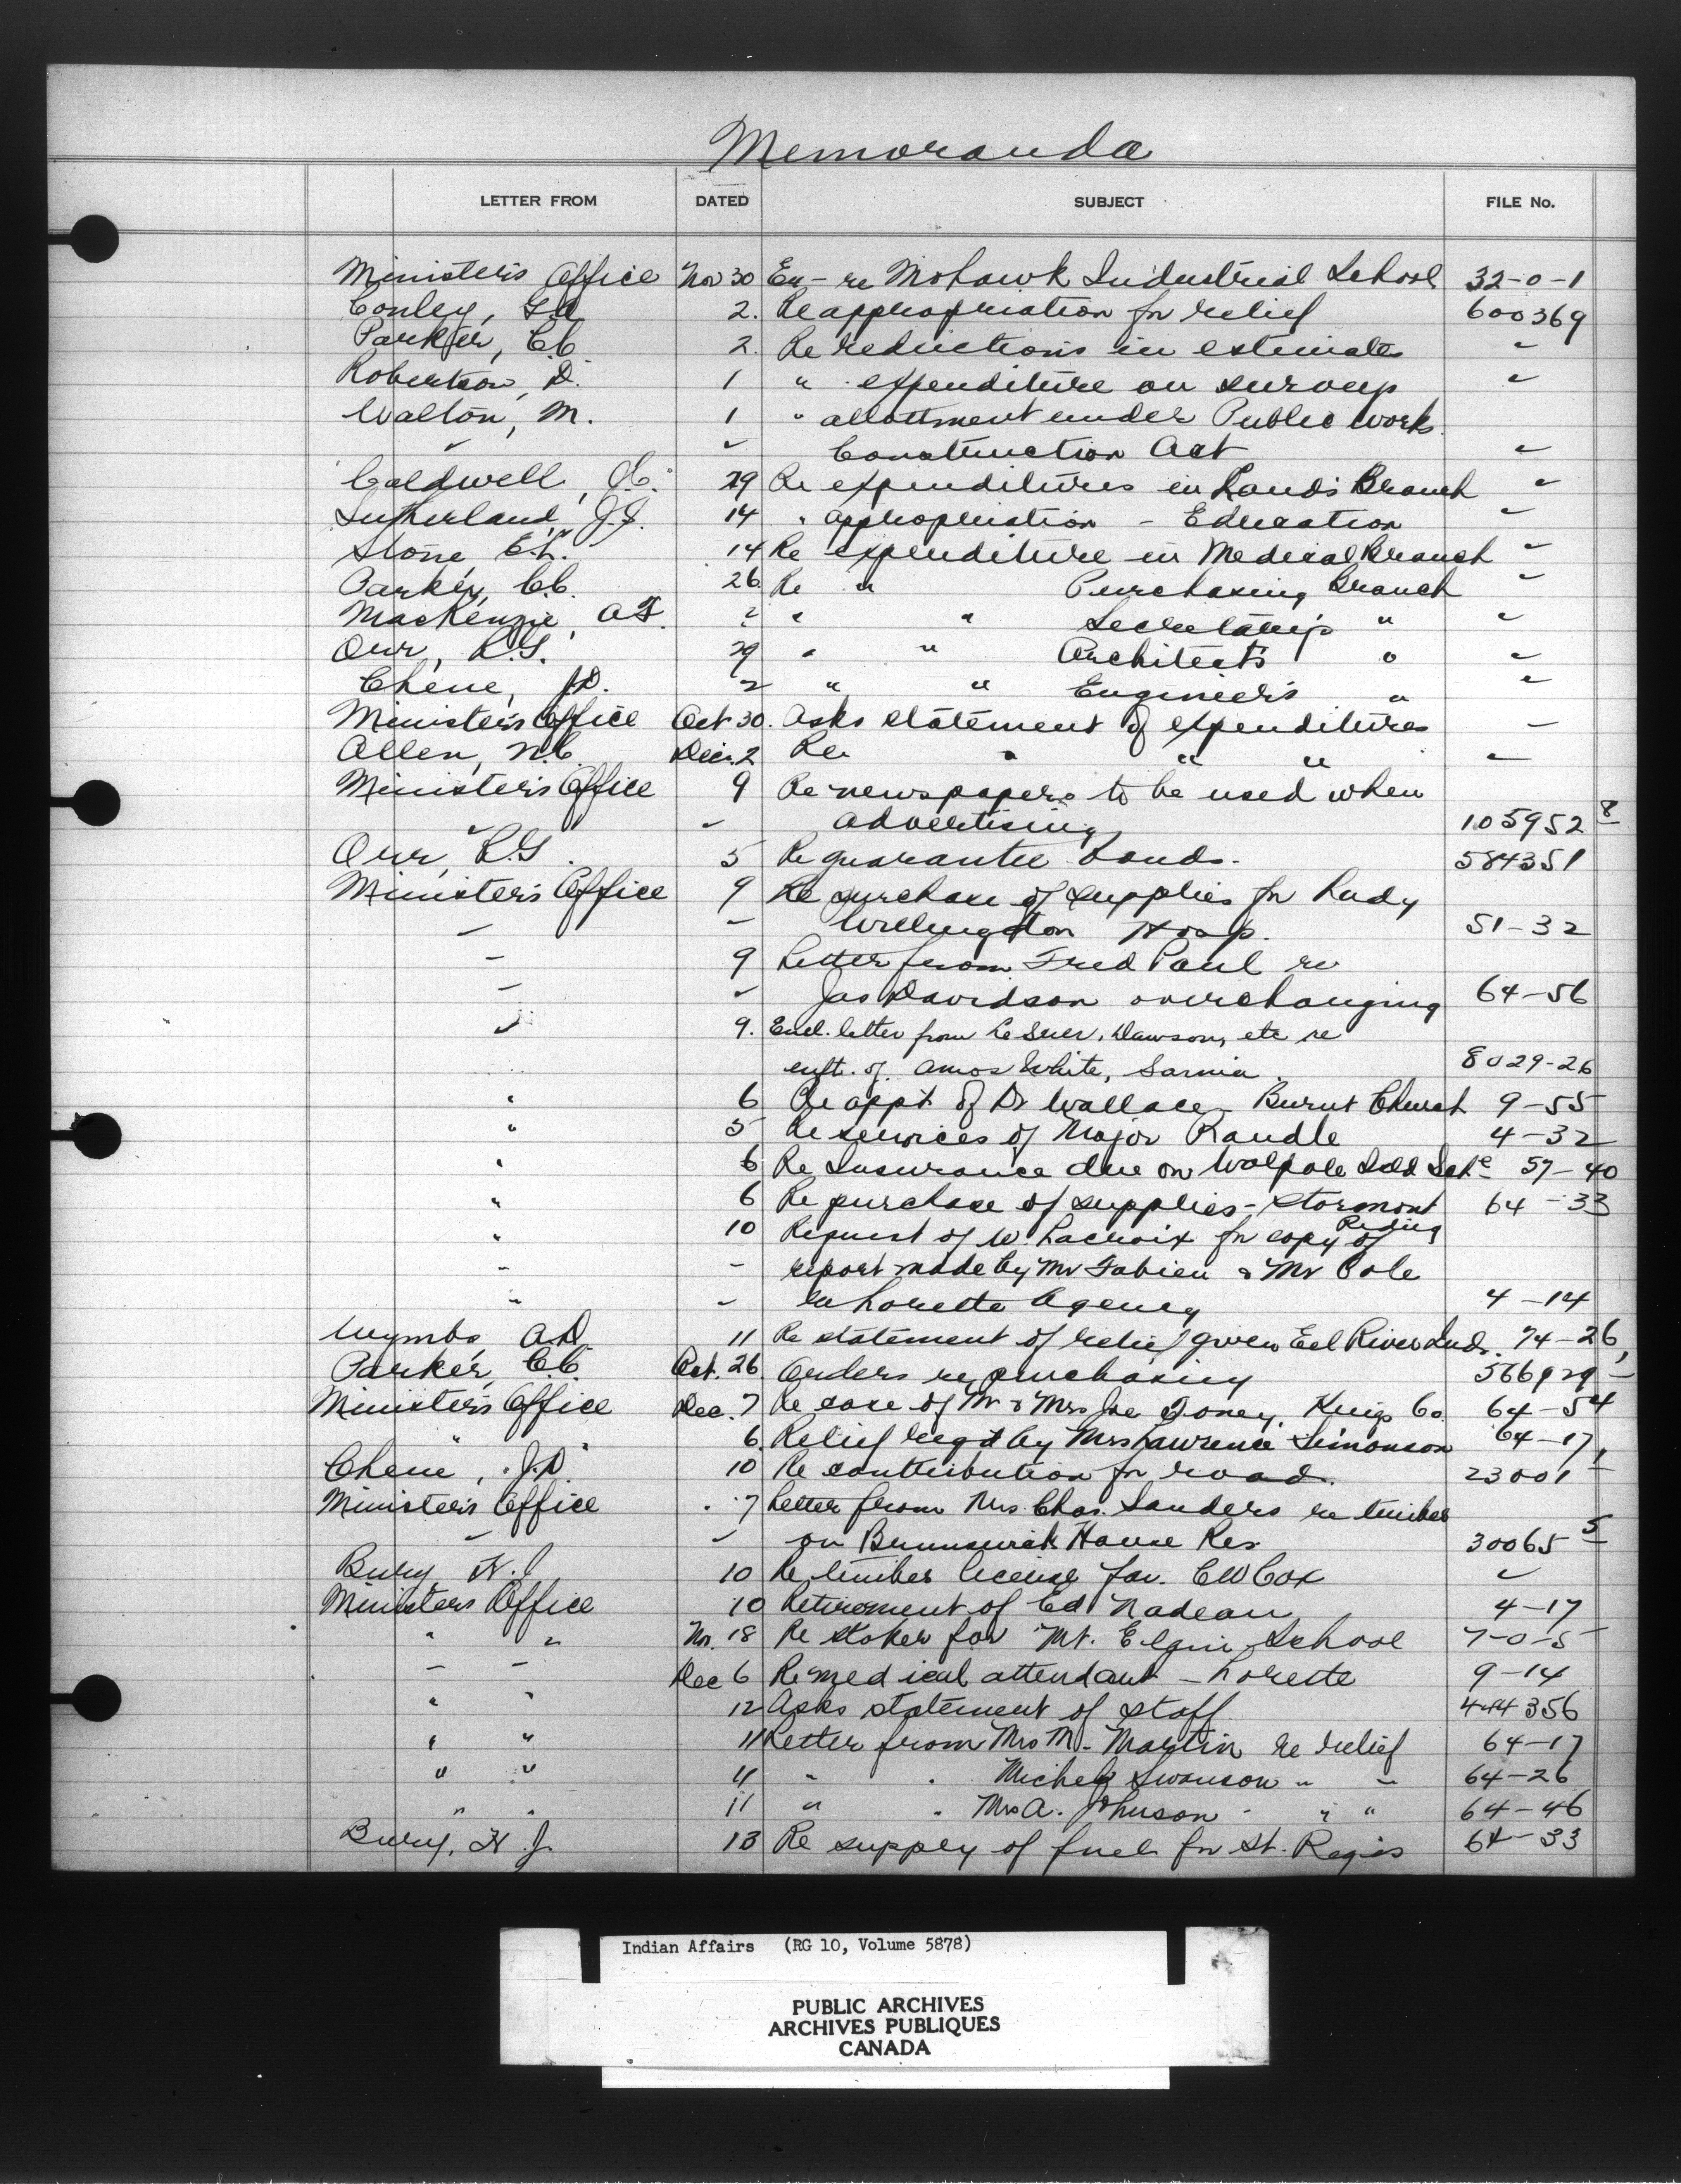 Memoranda
LETTER FROM DATED SUBJECT FILE No.
Minister's Office Nov 30 En - re Mohawk Industrial School 32-0-1
Conley, 2. Re appropriation for relief 600369
Parker, C.C. 2. Re reductions in estimates "
Robertson, D. 1 " expenditure on surveys "
Walton, M. 1 " allottment under Public Works
" " Construction Act "
Caldwell, 29 Re expenditures in Lands Branch "
Sutherland, J.J. 14 " appropriation - Education "
Stone, E.L. 14 Re expenditure in Medical Branch "
Parker, C.C. 26 Re " Purchasing Branch "
MacKenzie, A.F. 2 " " Secretary's " "
Orr, R.G. 29 " " Architect's " "
Chene, J.D. 2 " " Engineer's " "
Minister's Office Oct 30. Asks statement of expenditures "
Allen, N.C. Dec. 2 Re " " " "
Minister's Office 9 Re newspapers to be used when
" " advertising 105952 8
Orr, R.G. 5 Re guarantee bonds. 584351
Minister's Office 9 Re purchase of supplies for Lady
" " Willingdon Hosp. 51-32
" 9 Letter from Fred Paul re
" " Jas Davidson overcharging 64-56
" 9. Encl. letter from LeSuer, Dawson, etc re
enft. of Amos White, Sarnia. 8029-26
" 6 Re appt of Dr Wallace - Burnt Church 9-55
" 5 Re services of Major Randle 4-32
" 6 Re Insurance due on Walpole Isld Sch 57-40
" 6 Re purchase of supplies - Stormont 64-33
" 10 Request of W. Lacroix for copy of
" " report made by Mr Fabien & Mr Cole
" " Lorette Agency 4-14
Wymbs, A.D. 11 Re statement of relief given Eel River Inds. 74-26,
Parker, C.C. Oct. 26 Orders re purchasing 566929 -
Minister's Office Dec. 7 Re case of Mr & Mrs Joe Toney, Kings Co. 64-54
" 6. Relief reqd by Mrs Lawrence Simonson 64-17,
Chene, J.D. 10 Re contribution for road. 23001 -
Minister's Office 7 Letter from Mrs. Chas. Sanders re timber
" " on Brunswick House Res. 30065 5
Bury, H.J. 10 Re timber license fav. C W Cox "
Minister's Office 10 Retirement of Ed Nadeau 4-17
" " No. 18 Re stoker for Mt. Elgin School 7-0-5
" " Dec 6 Re medical attendant - Lorette 9-14
" " 12 Asks statement of staff 444356
" " 11 Letter from Mrs M. Martin re relief 64-17
" " 11 " " Michel Swanson " " 64-26
" " 11 " " Mrs A. Johnson " " " 64-46
Bury, H.J. 13 Re supply of fuel for St. Regis 64-33
Indian Affairs (RG 10, Volume 5878)
PUBLIC ARCHIVES
ARCHIVES PUBLIQUES
CANADA